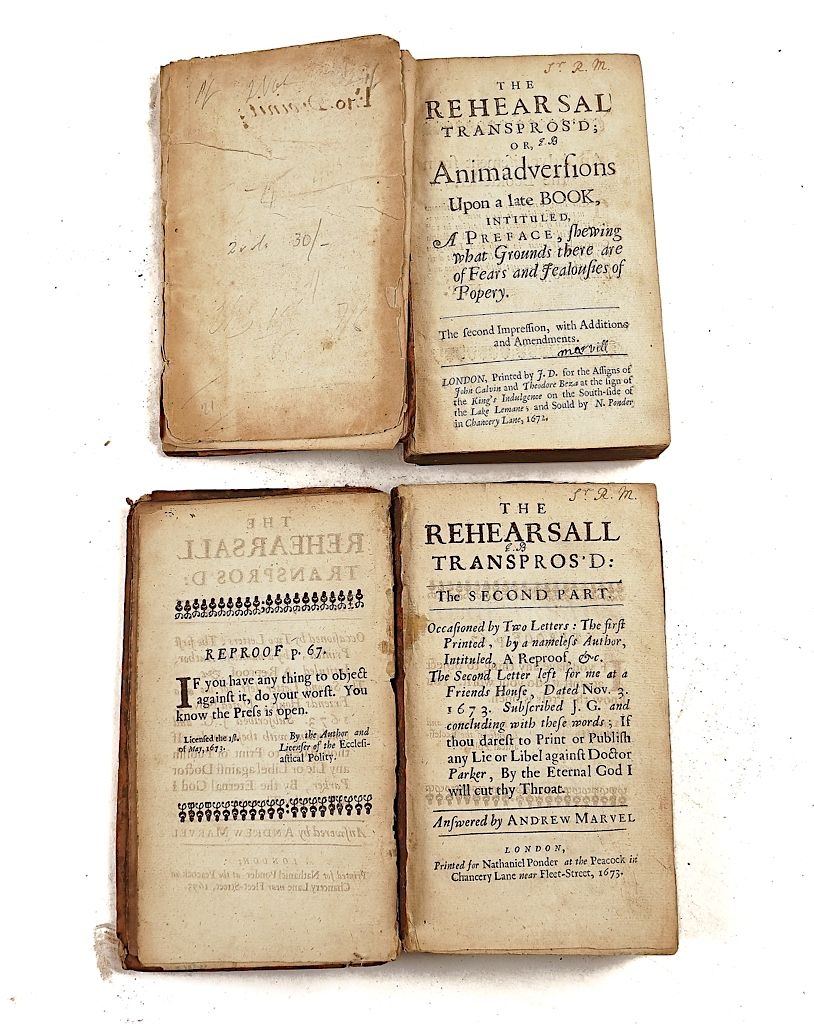 2 vols 30/-
Sr. R. M.
THE
REHEARSAL
TRANSPROS'D;
OR,
Animadverſions
Upon a late BOOK,
INTITULED,
A PREFACE, ſhewing
what Grounds there are
of Fears and Jealouſies of
Popery.
The ſecond Impreſſion, with Additions
and Amendments.
marvill
LONDON, Printed by J. D. for the Aſſigns of
John Calvin and Theodore Beza at the ſign of
the King's Indulgence on the South-ſide of
the Lake Lemane; and Sould by N. Ponder
in Chancery Lane, 1672.
REPROOF p. 67.
IF you have any thing to object
againſt it, do your worſt. You
know the Preſs is open.
Licenſed the 1ſt.
of May, 1673.
By the Author and
Licenſer of the Eccleſi-
aſtical Polity.
Sr. R. M.
THE
REHEARSALL
TRANSPROS'D:
The SECOND PART.
Occaſioned by Two Letters: The firſt
Printed, by a nameleſs Author,
Intituled, A Reproof, &c.
The Second Letter left for me at a
Friends Houſe, Dated Nov. 3.
1673. Subſcribed J. G. and
concluding with theſe words; If
thou dareſt to Print or Publiſh
any Lie or Libel againſt Doctor
Parker, By the Eternal God I
will cut thy Throat.
Anſwered by ANDREW MARVEL
LONDON,
Printed for Nathaniel Ponder at the Peacock in
Chancery Lane near Fleet-Street, 1673.